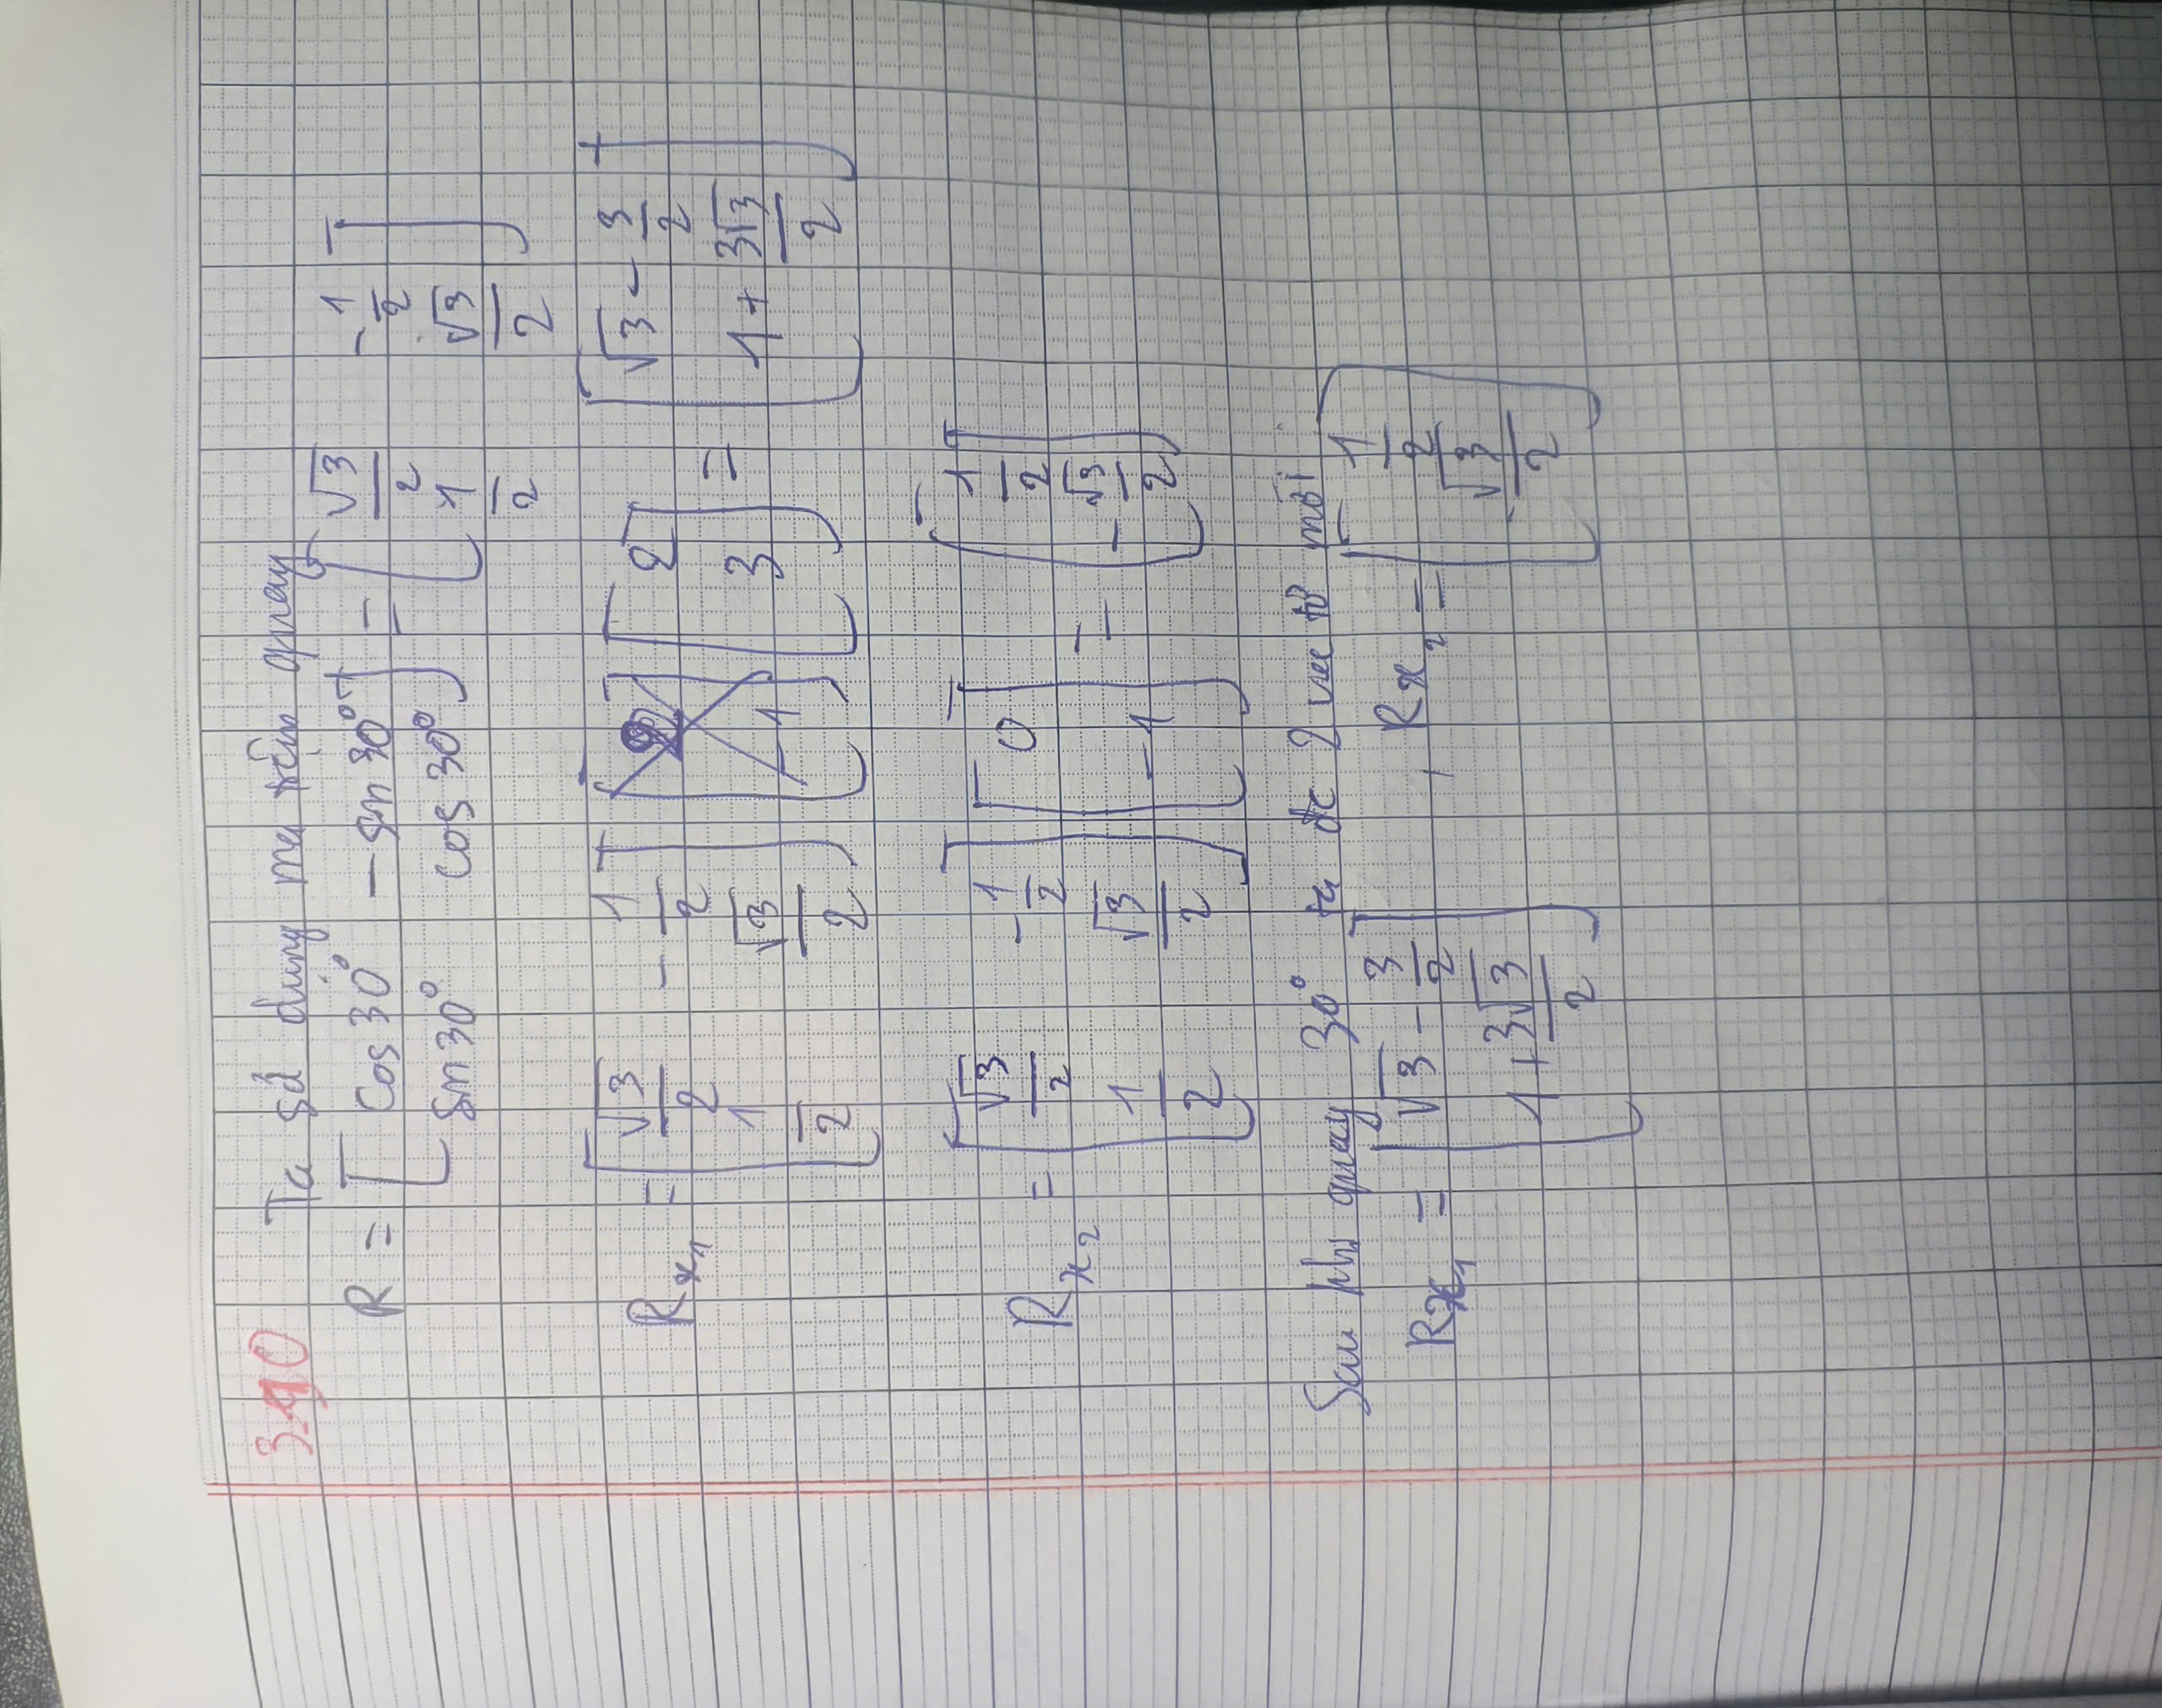 3.10 Ta sử dụng ma trận quay
R = [cos 30° -sin 30°; sin 30° cos 30°] = [√3/2 -1/2; 1/2 √3/2]
Rx₁ = [√3/2 -1/2; 1/2 √3/2] [2; 3] = [√3 - 3/2; 1 + 3√3/2]
Rx₂ = [√3/2 -1/2; 1/2 √3/2] [0; -1] = [1/2; -√3/2]
Sau khi quay 30° ta đc 2 vec tơ mới
Rx₁ = [√3 - 3/2; 1 + 3√3/2], Rx₂ = [1/2; -√3/2]